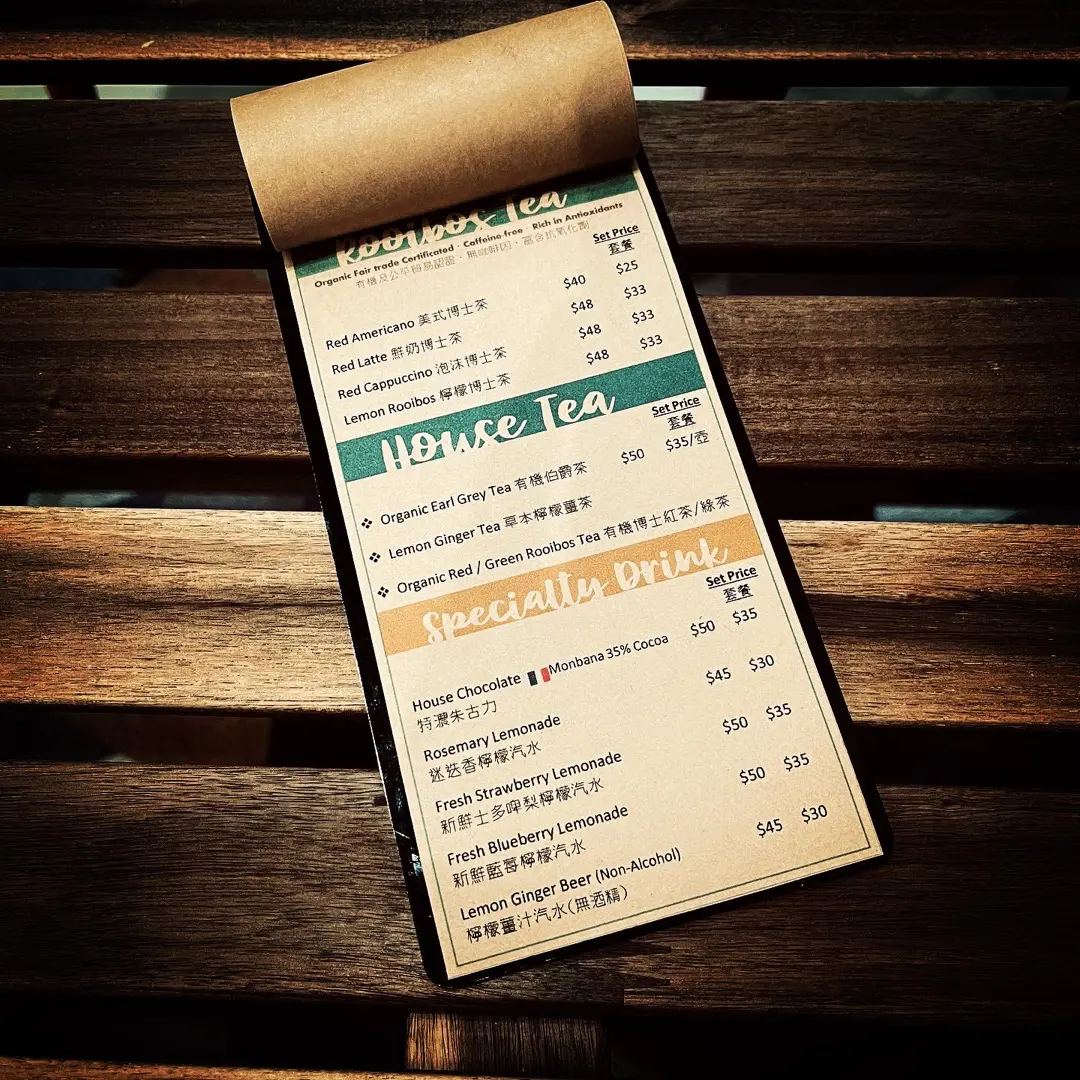 Rooibos Tea
Organic Fair trade Certified · Caffeine free · Rich in Antioxidants
有機及公平貿易認證、無咖啡因、富含抗氧化劑
Set Price
套餐
Red Americano 美式博士茶 $40 $25
Red Latte 鮮奶博士茶 $48 $33
Red Cappuccino 泡沫博士茶 $48 $33
Lemon Rooibos 檸檬博士茶 $48 $33
House Tea
Set Price
套餐
❖ Organic Earl Grey Tea 有機伯爵茶 $50 $35/壺
❖ Lemon Ginger Tea 草本檸檬薑茶
❖ Organic Red / Green Rooibos Tea 有機博士紅茶/綠茶
Specialty Drink
Set Price
套餐
House Chocolate Monbana 35% Cocoa $50 $35
特濃朱古力
Rosemary Lemonade $45 $30
迷迭香檸檬汽水
Fresh Strawberry Lemonade $50 $35
新鮮士多啤梨檸檬汽水
Fresh Blueberry Lemonade $50 $35
新鮮藍莓檸檬汽水
Lemon Ginger Beer (Non-Alcohol) $45 $30
檸檬薑汁汽水(無酒精)